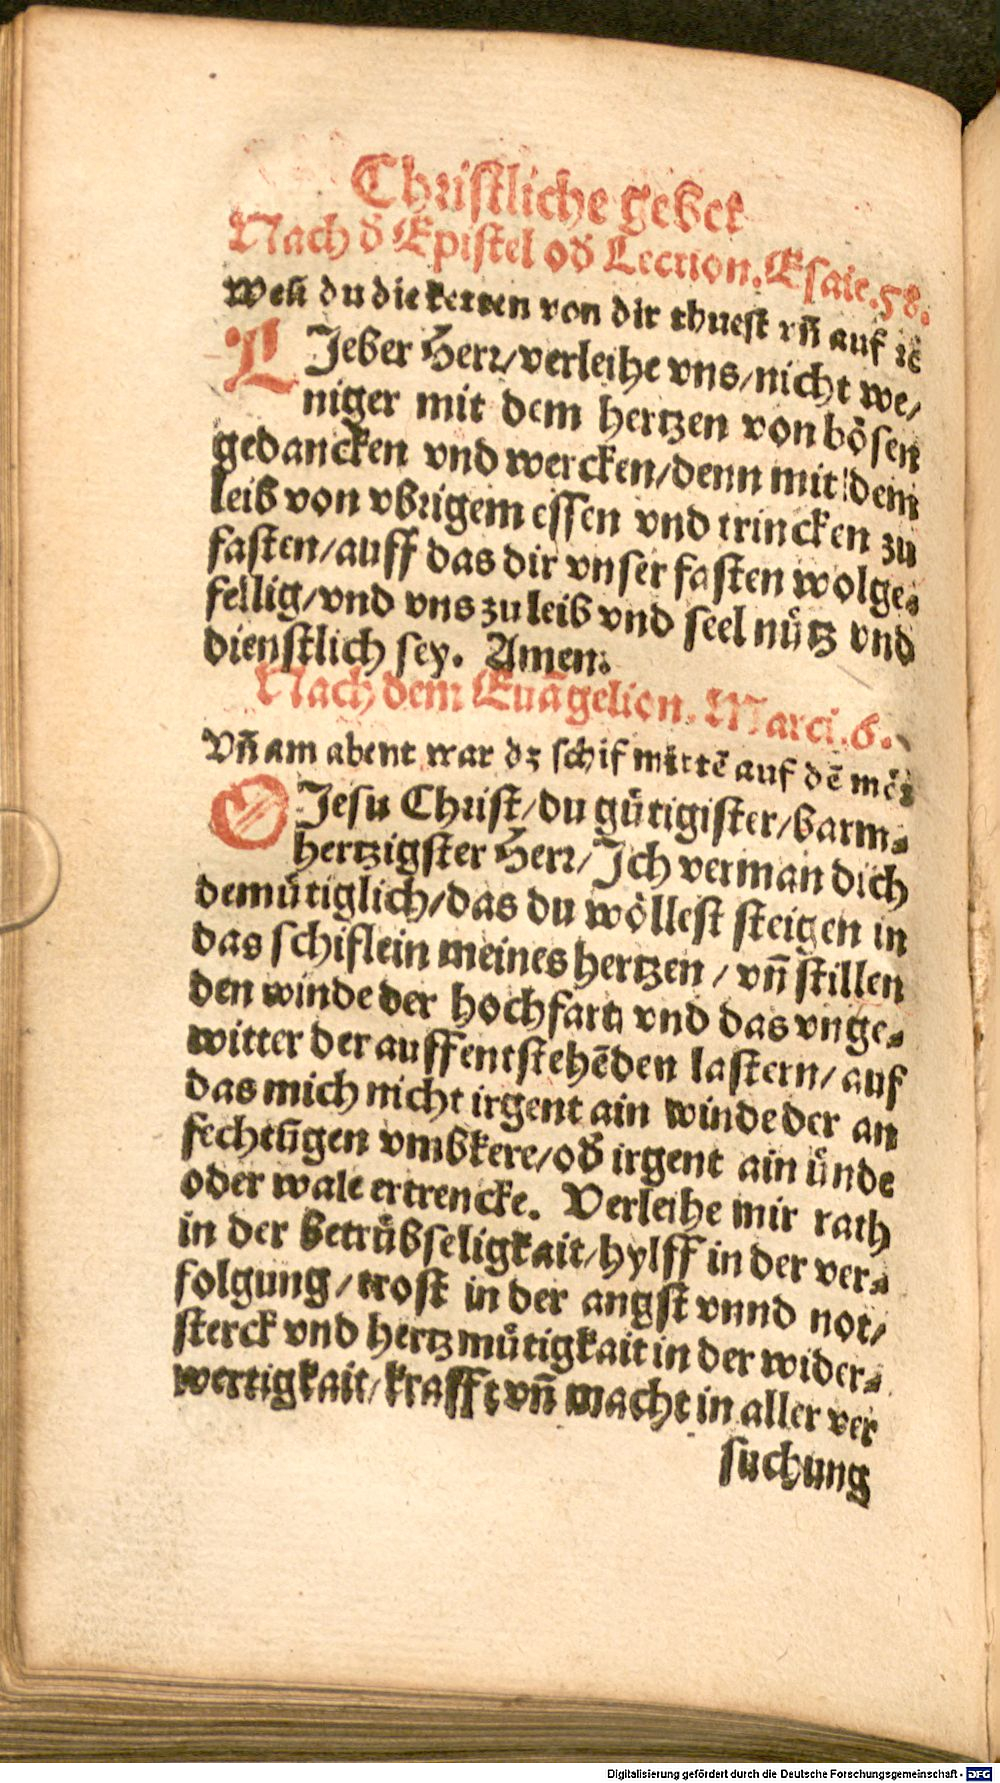 Christliche gebet
Nach đ Epistel ođ Lection. Esaie. 58.
Weñ du die ketten von dir thuest vñ auf
LJeber Herr/verleihe vns/nicht we/
niger mit dem hertzen von bösen
gedancken vnd wercken/denn mit dem
leib von vbrigem essen vnd trincken zu
fasten/auff das dir vnser fasten wolge-
fellig/vnd vns zu leib vnd seel nuͤtz vnd
dienstlich sey. Amen.
Nach dem Euãgelion. Marci. 6.
Vñ am abent war dz schif mittẽ auf dẽ
O Jesu Christ/du guͤtigister/barm-
hertzigster Herr/Jch verman dich
demuͤtiglich/das du woͤllest steigen in
das schiflein meines hertzen/vñ stillen
den winde der hochfart vnd das vnge-
witter der auffentstehẽden lastern/auf
das mich nicht irgent ain winde der an
fechtũgen vmbkere/ođ irgent ain uͤnde
oder wale ertrencke. Verleihe mir rath
in der betruͤbseligkait/hylff in der ver-
folgung/trost in der angst vnnd not/
sterck vnd hertzmuͤtigkait in der wider-
wertigkait/krafft vñ macht in aller ver
suchung
Digitalisierung gefördert durch die Deutsche Forschungsgemeinschaft - DFG